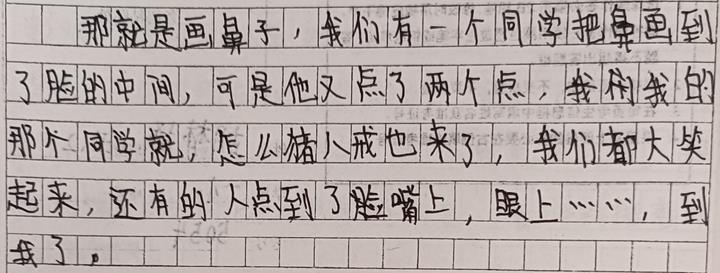 那就是画鼻子，我们有一个同学把鼻画到
了脸的中间，可是他又点了两个点，我闲我的
那个同学就，怎么猪八戒也来了，我们都大笑
起来，还有的人点到了脸嘴上，眼上……，到
我了。